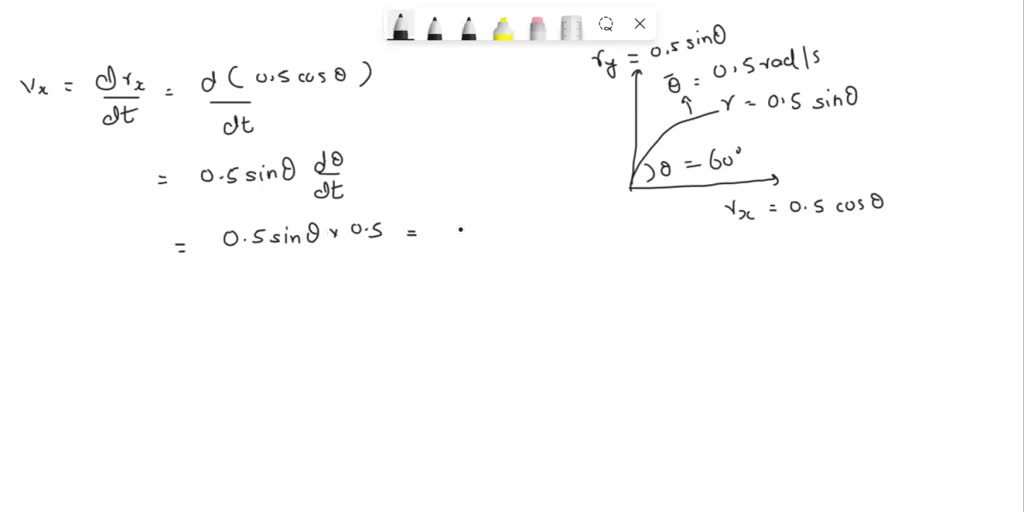 Vx = drx/dt = d(0.5 cos θ)/dt
= 0.5 sinθ dθ/dt
= 0.5 sinθ × 0.5 = .
ry = 0.5 sinθ
θ̄ = 0.5 rad/s
r = 0.5 sinθ
θ = 60°
rx = 0.5 cos θ